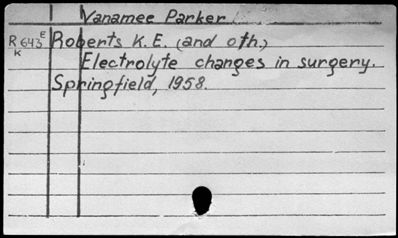 Vanamee Parker
R643E Roberts K.E. (and oth.)
K Electrolyte changes in surgery.
Springfield, 1958.